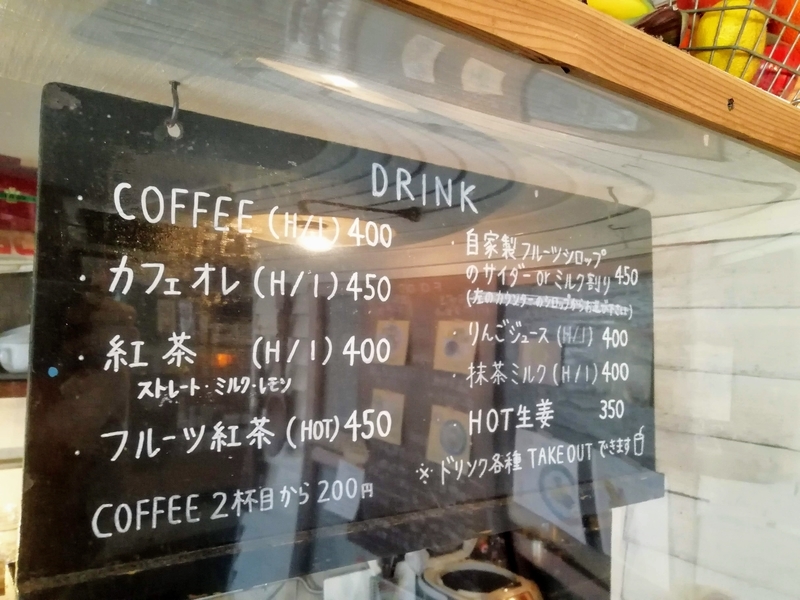 DRINK
・COFFEE (H/I) 400
・カフェオレ (H/I) 450
・紅茶 (H/I) 400
ストレート・ミルク・レモン
・フルーツ紅茶 (HOT) 450
COFFEE 2杯目から200円
・自家製フルーツシロップ
のサイダー or ミルク割り 450
(左のカウンターのシロップからお選び下さい)
・りんごジュース (H/I) 400
・抹茶ミルク (H/I) 400
・HOT生姜 350
※ドリンク各種 TAKE OUT できます